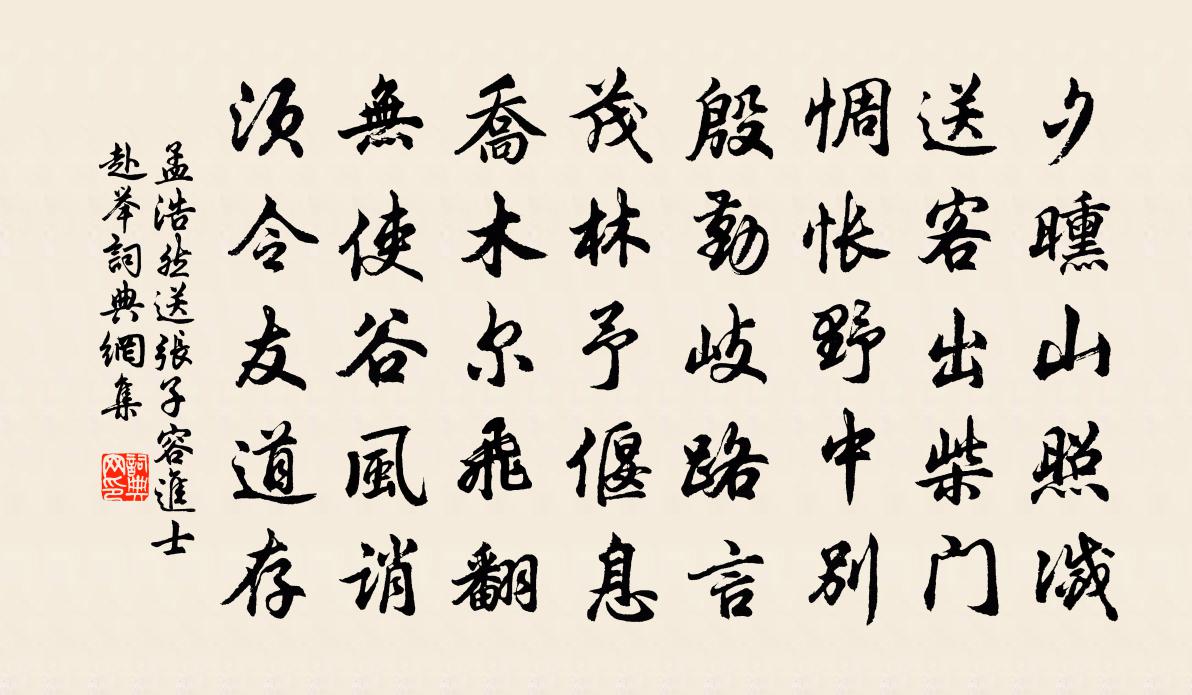 夕曛山照滅
送客出柴门
惆怅野中别
殷勤岐路言
茂林予偃息
喬木尔飛翻
無使谷風誚
須令友道存
孟浩然送張子容進士
赴举詞典網集
詞典网印